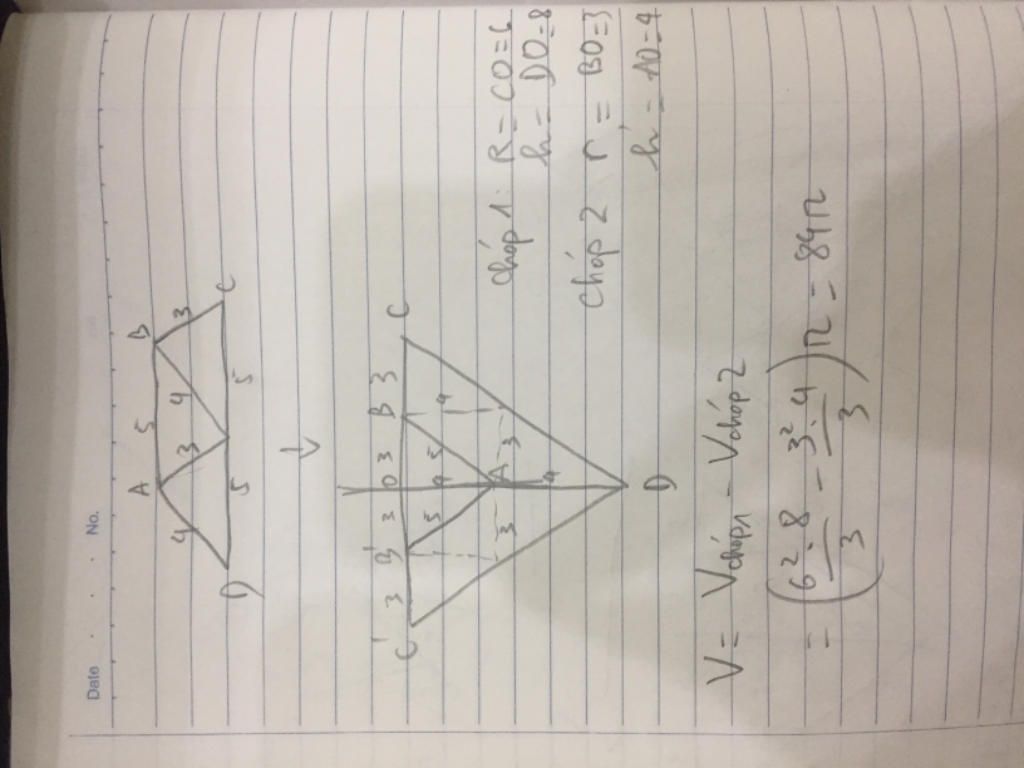 Date . . . No.
A 5 B
4 3 4 3
D 5 5 C
C' 3 B' 3 O 3 B 3 C
5 4 5 4
3 A 3
4
D
chóp 1: R = CO = 6
h = DO = 8
chóp 2 r = BO = 3
h' = AO = 4
V = Vchóp1 - Vchóp2
= (6².8/3 - 3².4/3)π = 84π